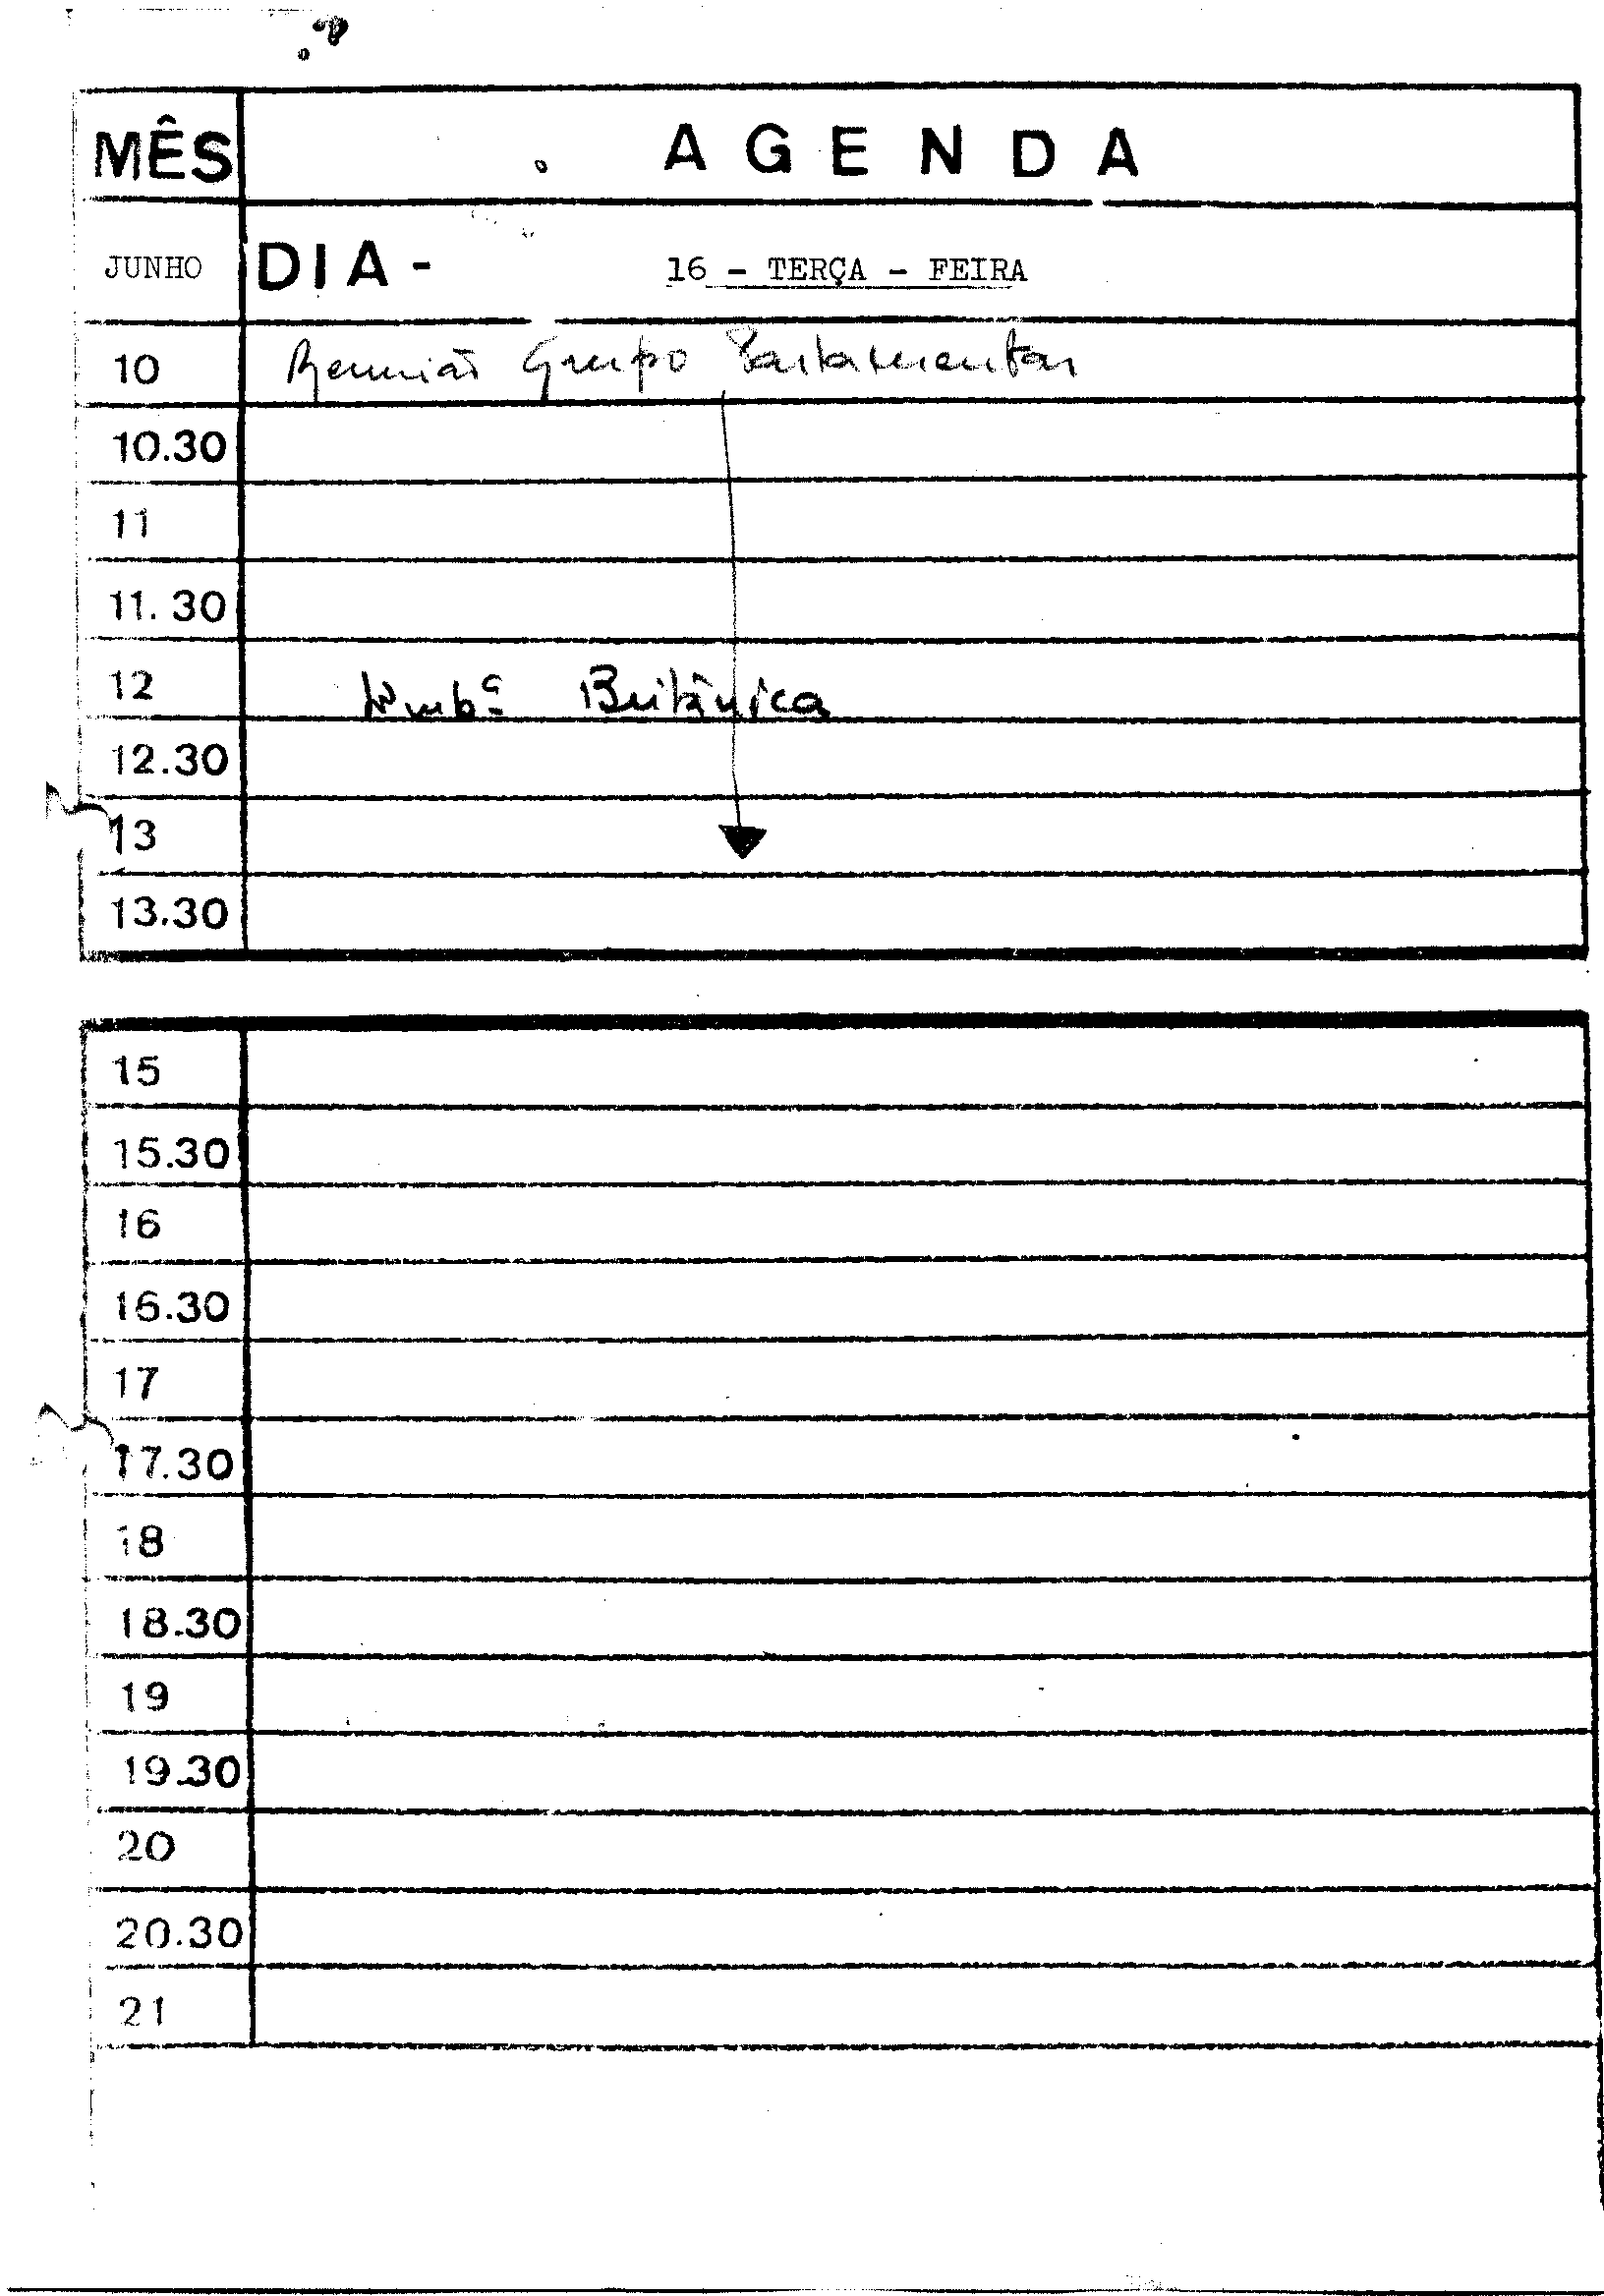 MÊS AGENDA
JUNHO DIA - 16 - TERÇA - FEIRA
10 Reunião Grupo Parlamentar
10.30
11
11.30
12 Embª Britânica
12.30
13
13.30
15
15.30
16
16.30
17
17.30
18
18.30
19
19.30
20
20.30
21